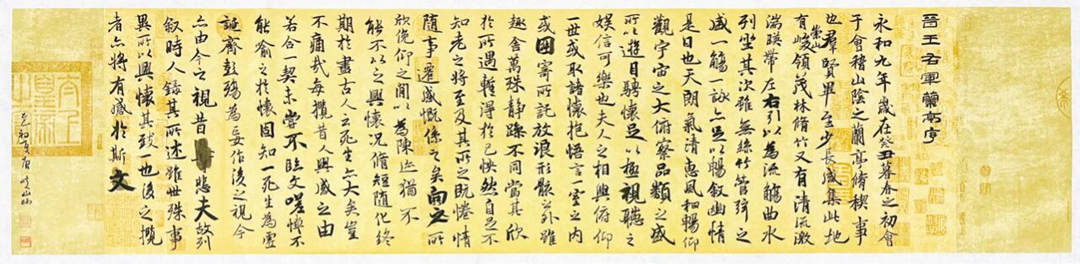 晉王右軍蘭亭序
永和九年歲在癸丑暮春之初會
于會稽山陰之蘭亭脩稧事
也群賢畢至少長咸集此地
有崇山峻領茂林脩竹又有清流激
湍暎帶左右引以為流觴曲水
列坐其次雖無絲竹管弦之
盛一觴一詠亦足以暢敘幽情
是日也天朗氣清惠風和暢仰
觀宇宙之大俯察品類之盛
所以遊目騁懷足以極視聽之
娛信可樂也夫人之相與俯仰
一世或取諸懷抱悟言一室之內
或因寄所託放浪形骸之外雖
趣舍萬殊靜躁不同當其欣
於所遇暫得於己快然自足不
知老之將至及其所之既惓情
隨事遷感慨係之矣向之所
欣俛仰之間以為陳迹猶不
能不以之興懷況脩短隨化終
期於盡古人云死生亦大矣豈
不痛哉每攬昔人興感之由
若合一契未嘗不臨文嗟悼不
能喻之於懷固知一死生為虛
誕齊彭殤為妄作後之視今
亦由今之視昔悲夫故列
敘時人錄其所述雖世殊事
異所以興懷其致一也後之攬
者亦將有感於斯文